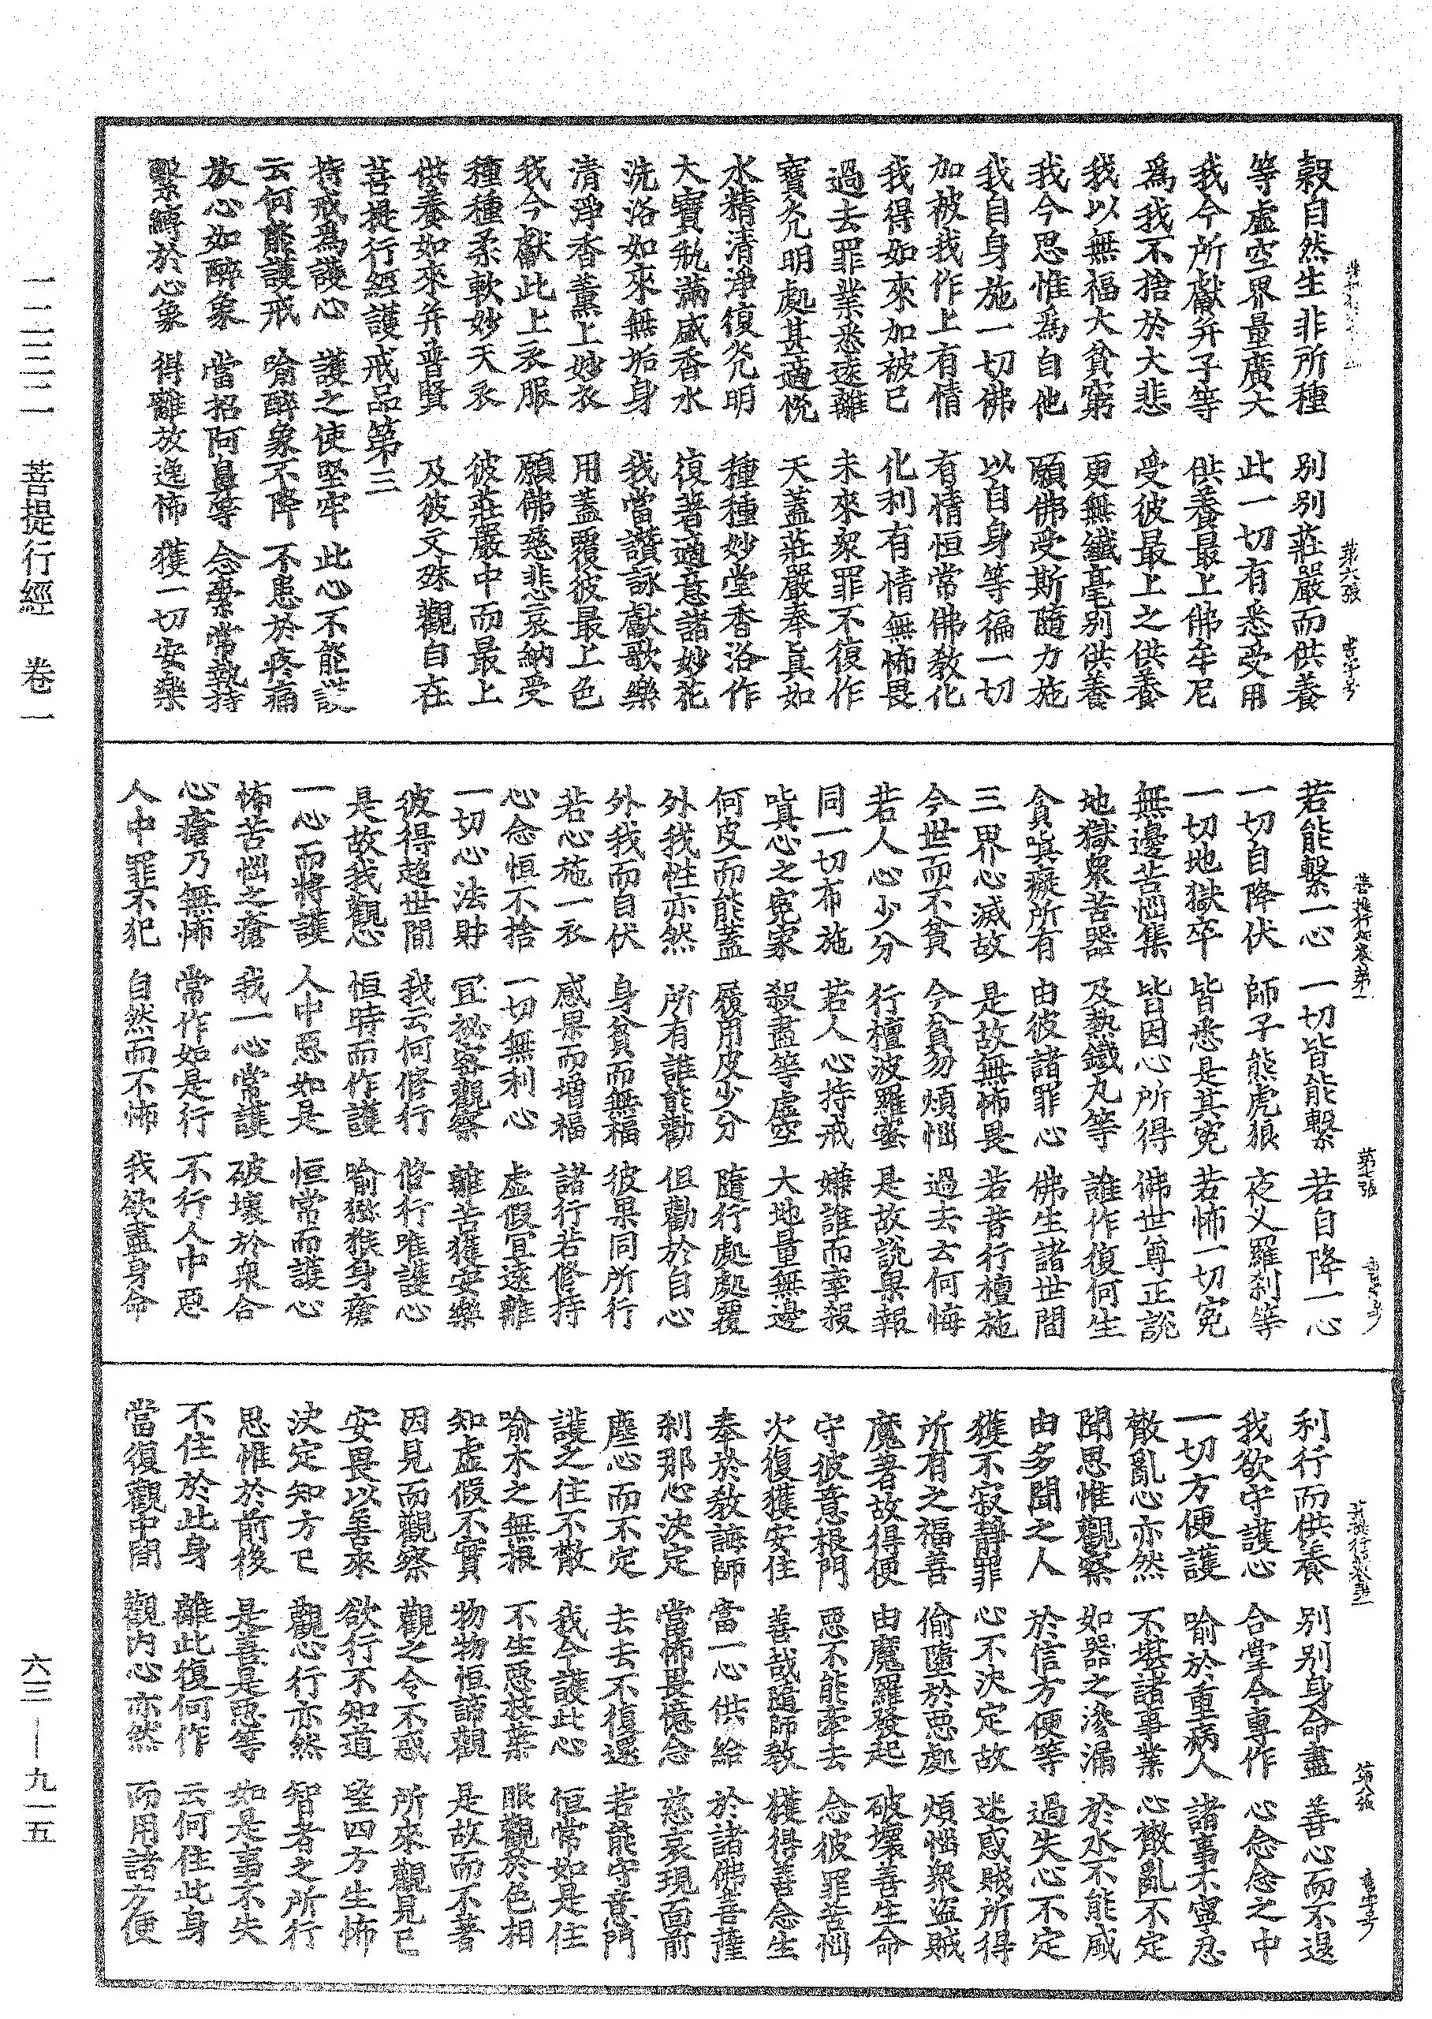 穀自然生非所種　別別莊嚴而供養
等虛空界量廣大　此一切有悉受用
我今所獻并子等　供養最上佛牟尼
為我不捨於大悲　受彼最上之供養
我以無福大貧窮　更無纖毫別供養
我今思惟為自他　願佛受斯隨力施
我自身施一切佛　以自身等徧一切
加被我作上有情　有情恒常佛教化
我得如來加被已　化利有情無怖畏
過去罪業悉遠離　未來眾罪不復作
寶光明處甚適悅　天蓋莊嚴奉真如
水精清淨復光明　種種妙堂香浴作
大寶瓶滿盛香水　復著適意諸妙花
洗浴如來無垢身　我當讚詠獻歌樂
清淨香薰上妙衣　用蓋覆彼最上色
我今獻此上衣服　願佛慈悲哀納受
種種柔軟妙天衣　彼莊嚴中而最上
供養如來并普賢　及彼文殊觀自在
菩提行經護戒品第三
持戒為護心　護之使堅牢　此心不能護
云何能護戒　喻醉象不降　不患於疼痛
放心如醉象　當招阿鼻等　念索常執持
繫縛於心象　得離放逸怖　獲一切安樂
若能繫一心　一切皆能繫　若自降一心
一切自降伏　師子熊虎狼　夜叉羅剎等
一切地獄卒　皆悉是其冤　若怖一切冤
無邊苦惱集　皆因心所得　佛世尊正說
地獄眾苦器　及熱鐵丸等　誰作復何生
貪嗔癡所有　由彼諸罪心　佛生諸世間
三界心滅故　是故無怖畏　若昔行檀施
今世而不貧　今貧勿煩惱　過去云何悔
若人心少分　行檀波羅蜜　是故說果報
同一切布施　若人心持戒　嫌誰而牽殺
嗔心之冤家　殺盡等虛空　大地量無邊
何皮而能蓋　履用皮少分　隨行處處覆
外我性亦然　所有誰能勸　但勸於自心
外我而自伏　身貧而無福　彼果同所行
若心施一衣　感果而增福　諸行若修持
心念恒不捨　一切無利心　虛假宜遠離
一切心法財　宜祕密觀察　離苦獲安樂
彼得超世間　我云何修行　修行唯護心
是故我觀心　恒時而作護　喻獼猴身瘡
一心而將護　人中惡如是　恒常而護心
怖苦惱之瘡　我一心常護　破壞於眾合
心瘡乃無怖　常作如是行　不行人中惡
人中罪不犯　自然而不怖　我欲盡身命
利行而供養　別別身命盡　善心而不退
我欲守護心　合掌今專作　心念念之中
一切方便護　喻於重病人　諸事不寧忍
散亂心亦然　不堪諸事業　心散亂不定
聞思惟觀察　如器之滲漏　於水不能盛
由多聞之人　於信方便等　過失心不定
獲不寂靜罪　心不決定故　迷惑賊所得
所有之福善　偷墮於惡處　煩惱眾盜賊
魔著故得便　由魔羅發起　破壞善生命
守彼意根門　惡不能牽去　念彼罪苦惱
次復獲安住　善哉隨師教　獲得善念生
奉於教誨師　當一心供給　於諸佛菩薩
剎那心決定　當怖畏憶念　慈哀現面前
塵心而不定　去去不復還　若能守意門
護之住不散　我今護此心　恒常如是住
喻木之無根　不生惡枝葉　眼觀於色相
知虛假不實　物物恒諦觀　是故而不著
因見而觀察　觀之令不惑　所來觀見已
安畏以善來　欲行不知道　望四方生怖
決定知方已　觀心行亦然　智者之所行
思惟於前後　是善是惡等　如是事不失
不住於此身　離此復何作　云何住此身
當復觀中間　觀內心亦然　而用諸方便
第六張
菩提行經卷第一　第七張
菩提行經卷第一　第八張
一二二二一　菩提行經　卷一
六三—九一五